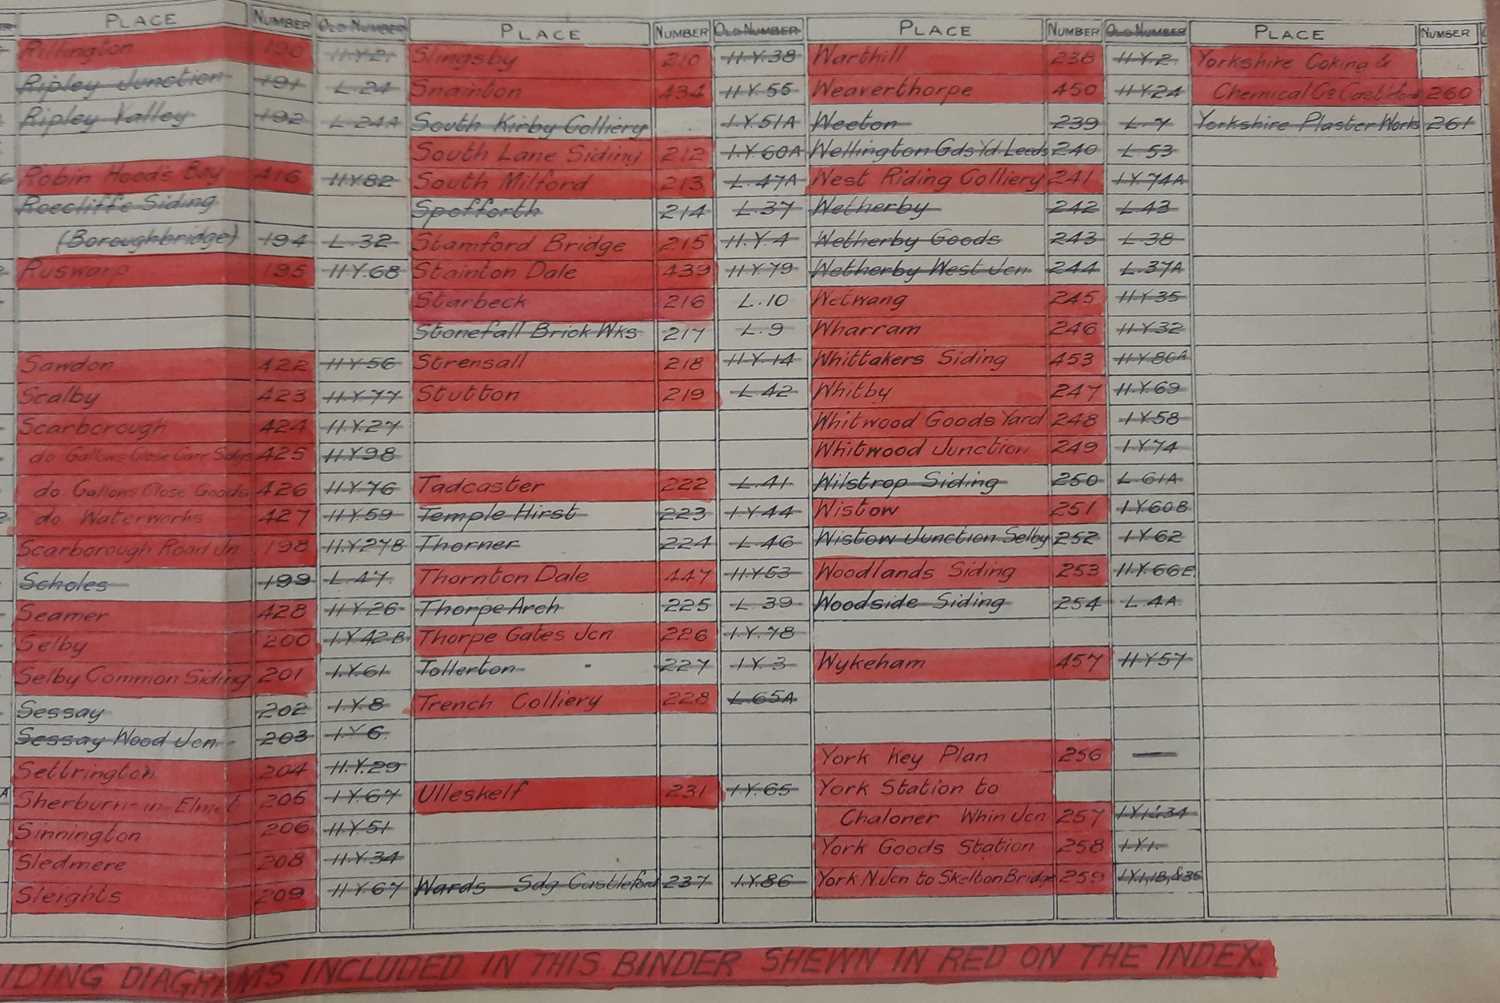 PLACE NUMBER OLD NUMBER PLACE NUMBER OLD NUMBER PLACE NUMBER OLD NUMBER PLACE NUMBER
Rillington 190 H.Y.21 Slingsby 210 H.Y.38 Warthill 238 H.Y.2. Yorkshire Coking &
Ripley Junction 191 L.24 Snainton 434 H.Y.55 Weaverthorpe 450 H.Y24 Chemical Co 260
Ripley Valley 192 L.24A South Kirby Colliery I.Y.51A Weeton 239 L.7 Yorkshire Plaster Works 261
South Lane Siding 212 I.Y.60A Wellington Gds Yd Leeds 240 L.53
Robin Hoods Bay 416 H.Y.82 South Milford 213 L.47A West Riding Colliery 241 I.Y.74A
Roecliffe Siding Spofforth 214 L.37 Wetherby 242 L.43
(Boroughbridge) 194 L.32 Stamford Bridge 215 H.Y.4 Wetherby Goods 243 L.38
Ruswarp 195 H.Y.68 Stainton Dale 439 H.Y.79 Wetherby West Jcn 244 L.37A
Starbeck 216 L.10 Wetwang 245 H.Y.35
Stonefall Brick Wks 217 L.9 Wharram 246 H.Y.32
Sawdon 422 H.Y.56 Strensall 218 H.Y.14 Whittakers Siding 453 H.Y.86A
Scalby 423 H.Y.77 Stutton 219 L.42 Whitby 247 H.Y.69
Scarborough 424 H.Y.27 Whitwood Goods Yard 248 I.Y.58
do Gallows Close Carr Sdgs 425 H.Y.98 Whitwood Junction 249 I.Y.74
do Gallows Close Goods 426 H.Y.76 Tadcaster 222 L.41 Wilstrop Siding 250 L 61A
do Waterworks 427 H.Y.59 Temple Hirst 223 I.Y.44 Wistow 251 I.Y.60B
Scarborough Road Jn 198 H.Y.27B Thorner 224 L.46 Wistow Junction Selby 252 I.Y 62
Scholes 199 L.47 Thornton Dale 447 H.Y.53 Woodlands Siding 253 H.Y.66E
Seamer 428 H.Y.26 Thorpe Arch 225 L.39 Woodside Siding 254 L.4A
Selby 200 I.Y.42B Thorpe Gates Jcn 226 I.Y.78
Selby Common Siding 201 I.Y.61 Tollerton 227 I.Y.3 Wykeham 457 H.Y.57
Sessay 202 I.Y.8 Trench Colliery 228 L.65A
Sessay Wood Jcn 203 I.Y.6
Settrington 204 H.Y.29 York Key Plan 256 —
Sherburn-in-Elmet 205 I.Y.67 Ulleskelf 231 I.Y.65 York Station to
Sinnington 206 H.Y.51 Chaloner Whin Jcn 257
Sledmere 208 H.Y.34 York Goods Station 258 I.Y.1.
Sleights 209 H.Y.67 Wards Sdg Castleford 237 I.Y.86 York N. Jcn to Skelton Bridge 259
IDING DIAGRAMS INCLUDED IN THIS BINDER SHEWN IN RED ON THE INDEX.